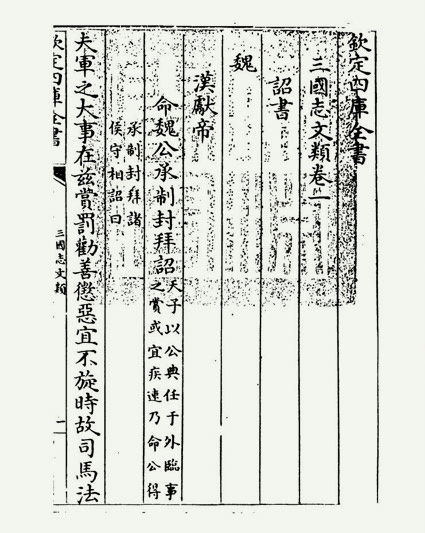 欽定四庫全書
三國志文類卷一
詔書
魏
漢獻帝
命魏公承制封拜詔
天子以公典任于外臨事
之賞或宜疾速乃命公得
承制封拜諸
侯守相詔曰
夫軍之大事在兹賞罰勸善懲惡宜不旋時故司馬法
欽定四庫全書
三國志文類
一